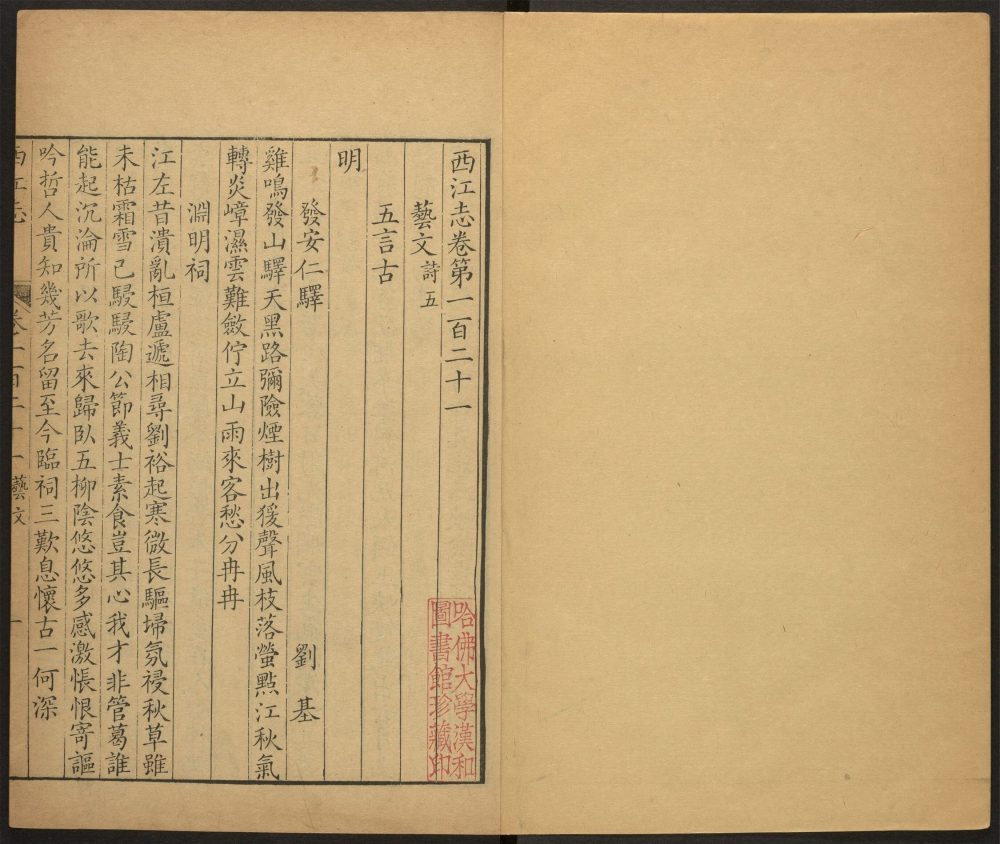 西江志卷第一百二十一
藝文詩五
五言古
明
發安仁驛 劉基
雞鳴發山驛天黑路彌險煙樹出猨聲風枝落螢點江秋氣
轉炎嶂濕雲難斂佇立山雨來客愁分冉冉
淵明祠
江左昔潰亂桓盧遞相尋劉裕起寒微長驅埽氛祲秋草雖
未枯霜雪已駸駸陶公節義士素食豈其心我才非管葛誰
能起沉淪所以歌去來歸臥五柳陰悠悠多感激悵恨寄謳
吟哲人貴知幾芳名留至今臨祠三歎息懷古一何深
西江志 卷一百二十一 藝文 一
哈佛大學漢和
圖書館珍藏印